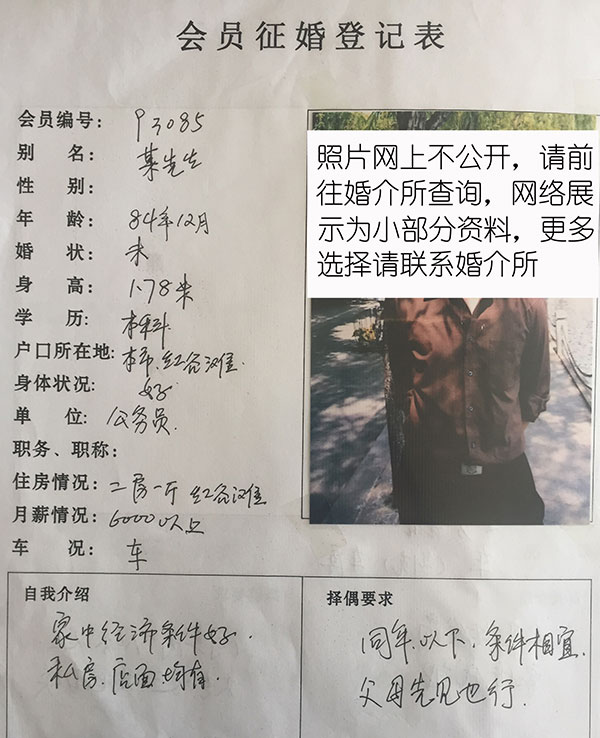 会员征婚登记表
会员编号: 93085
别 名: 某先生
性 别:
年 龄: 84年12月
婚 状: 未
身 高: 1.78米
学 历: 本科
户口所在地: 本市.红谷滩住.
身体状况: 好
单 位: 公务员.
职务、职称:
住房情况: 二房一厅 红谷滩住
月薪情况: 6000以上
车 况: 车
照片网上不公开，请前
往婚介所查询，网络展
示为小部分资料，更多
选择请联系婚介所
自我介绍
家中经济条件好.
私房.店面均有.
择偶要求
同年.以下.条件相宜.
父母先见也行.